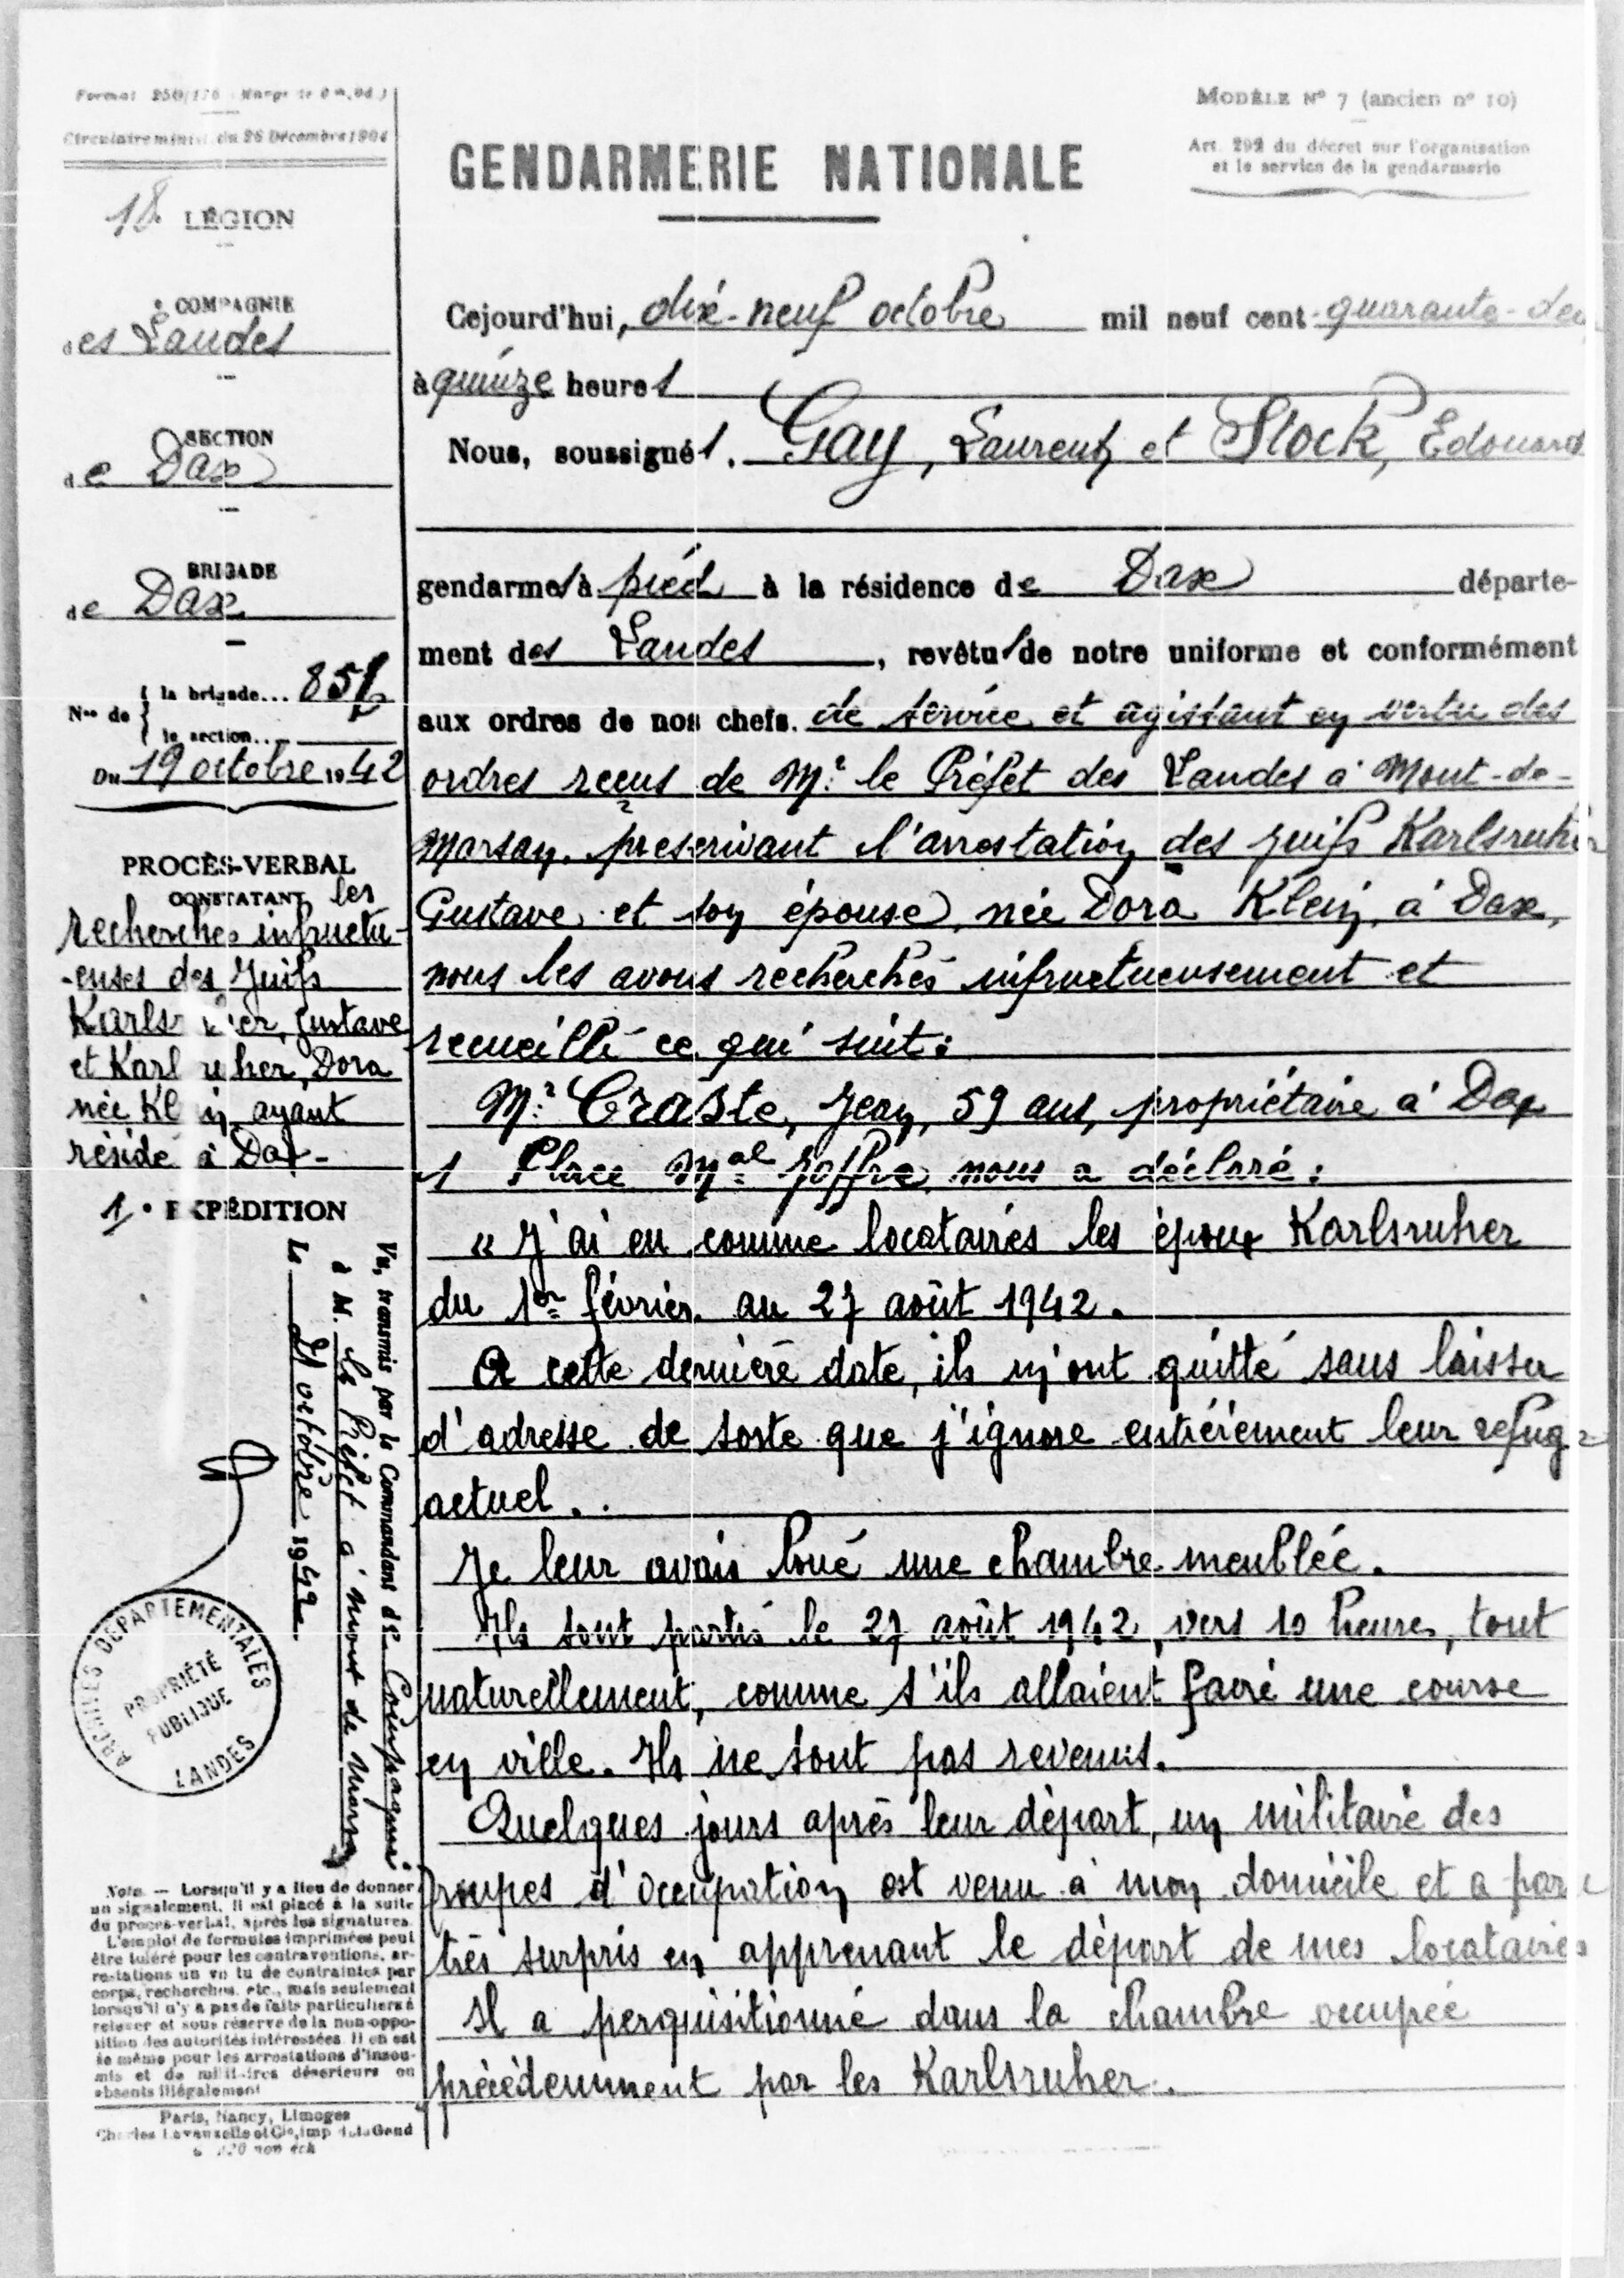 Format 250/176 Marge de 0m,04)
Circulaire minist. du 26 Décembre 1904
18e LÉGION
COMPAGNIE
des Landes
SECTION
de Dax
BRIGADE
de Dax
Nos de
la brigade...
la section...
Du 19 octobre 1942
PROCÈS-VERBAL
CONSTATANT les
recherches infructu-
-euses des Juifs
Karls er, Gustave
et Karl uher, Dora
née Kl in, ayant
résidé à Dax-
1e EXPÉDITION
Vu, transmis par le Commandant de Compagnie
à M. le Préfet à Mont de Marsan
Le 21 octobre 1942
ARCHIVES DÉPARTEMENTALES
PROPRIÉTÉ
PUBLIQUE
LANDES
Nota. — Lorsqu'il y a lieu de donner
un signalement, il est placé à la suite
du procès-verbal, après les signatures.
L'emploi de formules imprimées peut
être toléré pour les contraventions, ar-
restations en vertu de contraintes par
corps, recherches, etc., mais seulement
lorsqu'il n'y a pas de faits particuliers à
relever et sous réserve de la non-oppo-
sition des autorités intéressées. Il en est
de même pour les arrestations d'insou-
mis et de militaires déserteurs ou
absents illégalement
Paris, Nancy, Limoges
Charles Lavauzelle et Cie, imp. de la Gend
MODÈLE N° 7 (ancien n° 10)
Art. 292 du décret sur l'organisation
et le service de la gendarmerie
GENDARMERIE NATIONALE
Cejourd'hui, dix-neuf octobre mil neuf cent quarante-deu
à quinze heures
Nous, soussignés. Gay, Laurent, et Stock, Edouard
gendarmes à pied à la résidence de Dax départe-
ment des Landes, revêtus de notre uniforme et conformément
aux ordres de nos chefs. de service et agissant en vertu des
ordres reçus de Mr. le Préfet des Landes à Mont-de-
Marsan, prescrivant l'arrestation des juifs Karlsruher
Gustave et son épouse, née Dora Klein, à Dax,
nous les avons recherchés infructueusement et
recueilli ce qui suit:
Mr. Craste, Jean, 59 ans, propriétaire à Dax
1 Place Mal Joffre nous a déclaré:
« J'ai eu comme locataires les époux Karlsruher
du 1er février au 27 août 1942.
A cette dernière date, ils m'ont quitté sans laisser
d'adresse de sorte que j'ignore entièrement leur refuge
actuel.
Je leur avais loué une chambre meublée.
Ils sont partis le 27 août 1942, vers 10 heures, tout
naturellement, comme s'ils allaient faire une course
en ville. Ils ne sont pas revenus.
Quelques jours après leur départ, un militaire des
troupes d'occupation est venu à mon domicile et a paru
très surpris en apprenant le départ de mes locataires
Il a perquisitionné dans la chambre occupée
précédemment par les Karlsruher.